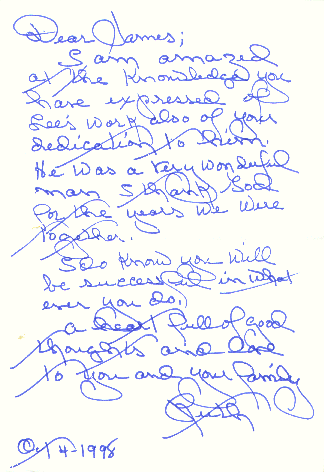 Dear James;
I am amazed
at the knowledge you
have expressed of
Lee's work also of your
dedication to him.
He was a very wonderful
man I thank God
for the years we were
together.
I do know you will
be successful in what
ever you do.
a heart full of good
thoughts and love
to you and your family
Ruth
4-1998